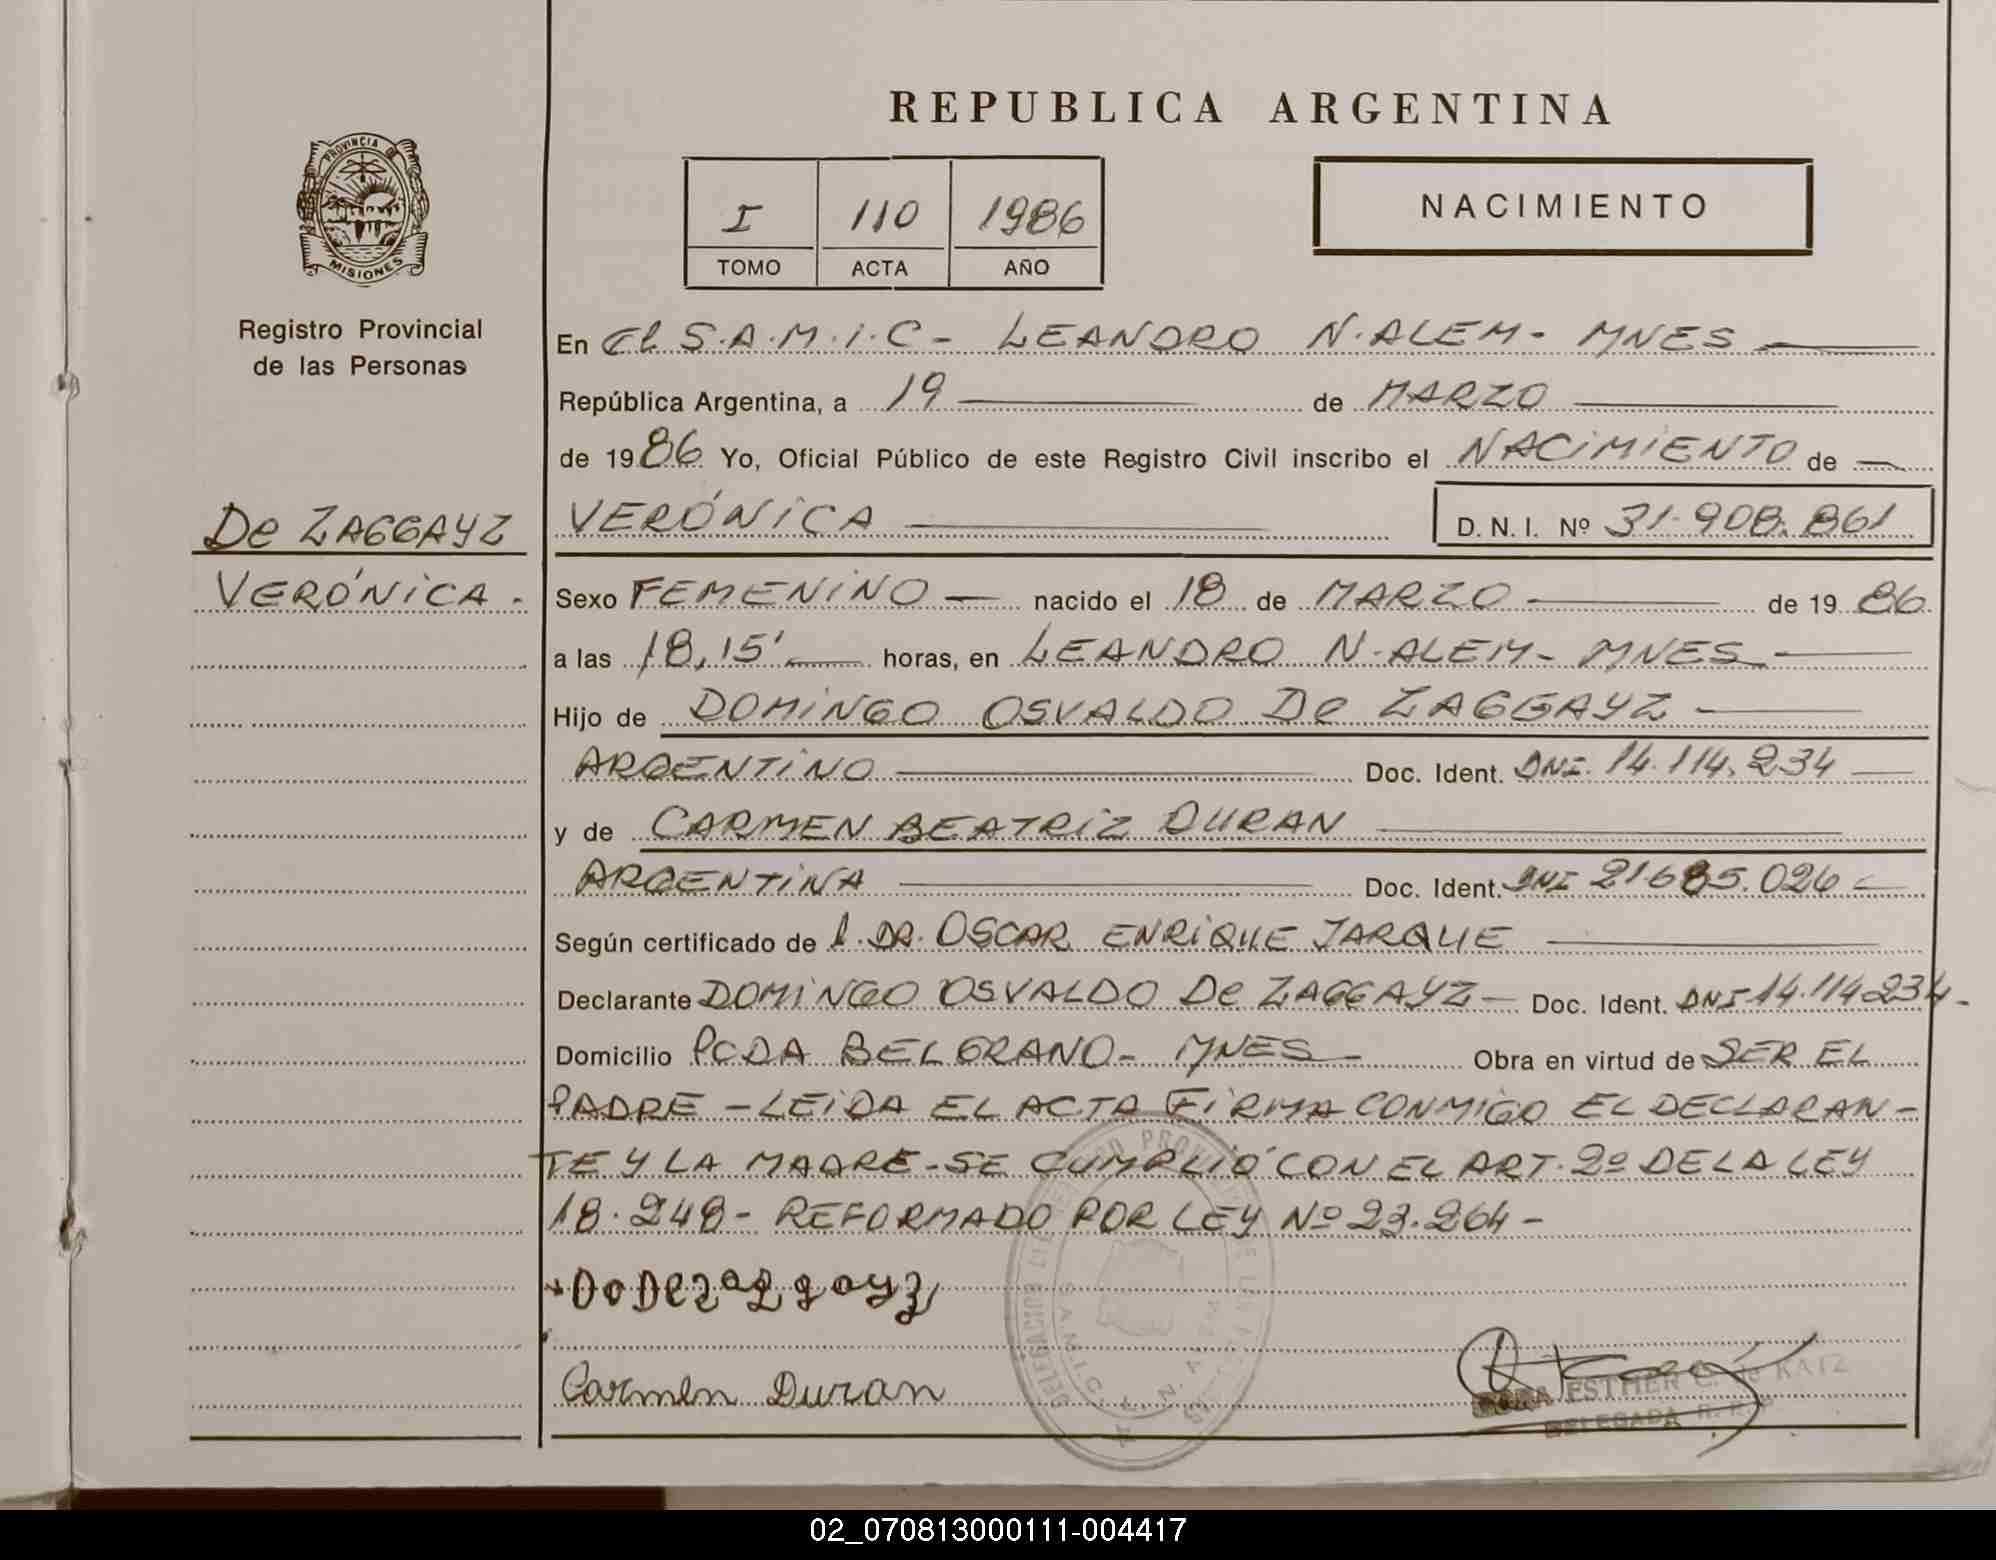 REPUBLICA ARGENTINA
PROVINCIA DE
MISIONES
I 110 1986
TOMO ACTA AÑO
NACIMIENTO
Registro Provincial
de las Personas
En El S.A.M.I.C - LEANDRO N. ALEM - MNES
República Argentina, a 19 de MARZO
de 1986 Yo, Oficial Público de este Registro Civil inscribo el NACIMIENTO de
VERÓNICA D. N. I. Nº 31.908.861
De ZAGGAYZ
VERÓNICA.
Sexo FEMENINO nacido el 18 de MARZO de 1986
a las 18,15' horas, en LEANDRO N. ALEM - MNES
Hijo de DOMINGO OSVALDO De ZAGGAYZ
ARGENTINO Doc. Ident. DNI. 14.114.234
y de CARMEN BEATRIZ DURAN
ARGENTINA Doc. Ident. DNI 21685.026
Según certificado de l. DR. OSCAR ENRIQUE JARQUE
Declarante DOMINGO OSVALDO De ZAGGAYZ - Doc. Ident. DNI 14.114234-
Domicilio PCDA BELGRANO - MNES - Obra en virtud de SER EL
PADRE - LEIDA EL ACTA FIRMA CONMIGO EL DECLARAN-
TE Y LA MADRE - SE CUMPLIÓ CON EL ART. 2º DE LA LEY
18.248 - REFORMADO POR LEY Nº 23.264 -
Do De zaggayz
Carmen Duran
ESTHER G. de KATZ
DELEGADA R. P. P.
02_070813000111-004417